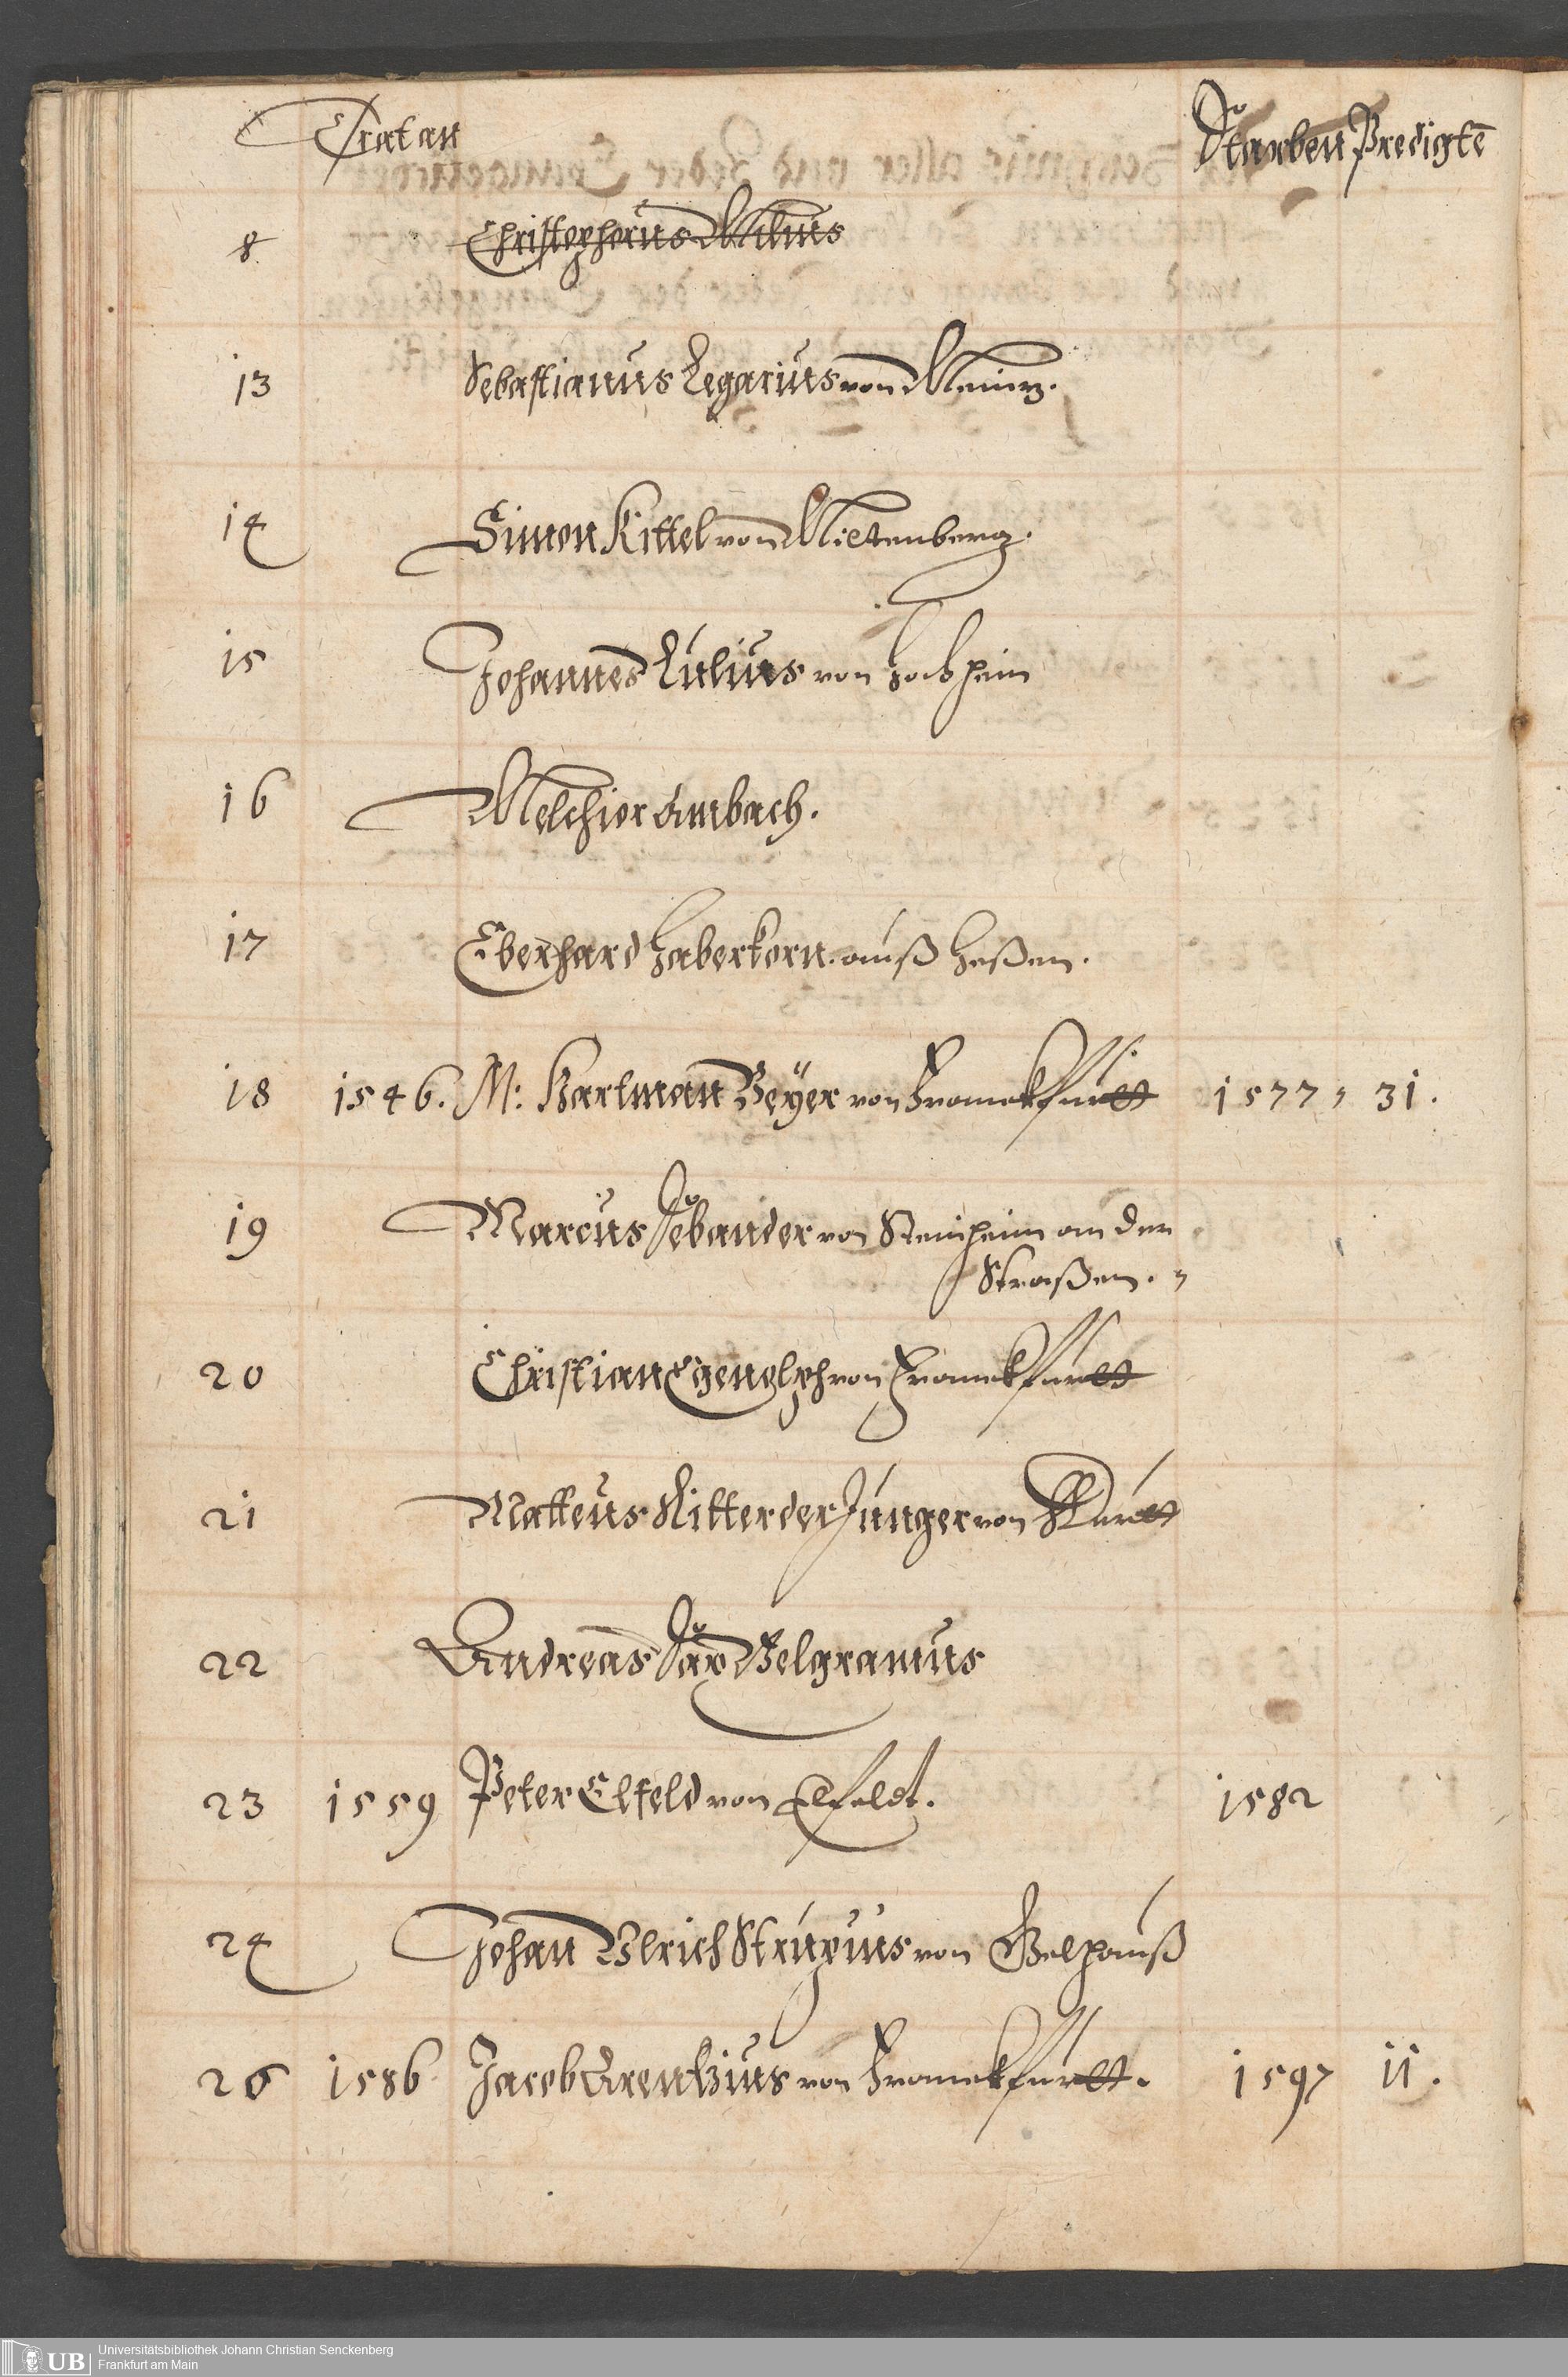 Tratan Starben Predigtē
8 Christopherus Milius
13 Sebastianus Legarius von Meintz.
14 Simon Kittel von Miltenberg.
15 Johannes Lulius von Hochheim
16 Melchior Ambach.
17 Eberhard Haberkorn. auß Heßen.
18 1546. M: Hartman Beÿer von Franckfurtt 1577, 31.
19 Marcus Sebander von Steinheim an der
Straßen.
20 Christian Egenolph von Franckfurtt
21 Matteus Ritter der Junger von
22 Andreas Sax Velgranius
23 1559 Peter Elfeld von Elfeldt. 1582
24 Johan Vlrich Strupius von Gelhauß
26 1586 Jacob Grentzius von Franckfurtt. 1597 11.
Universitätsbibliothek Johann Christian Senckenberg
UB Frankfurt am Main